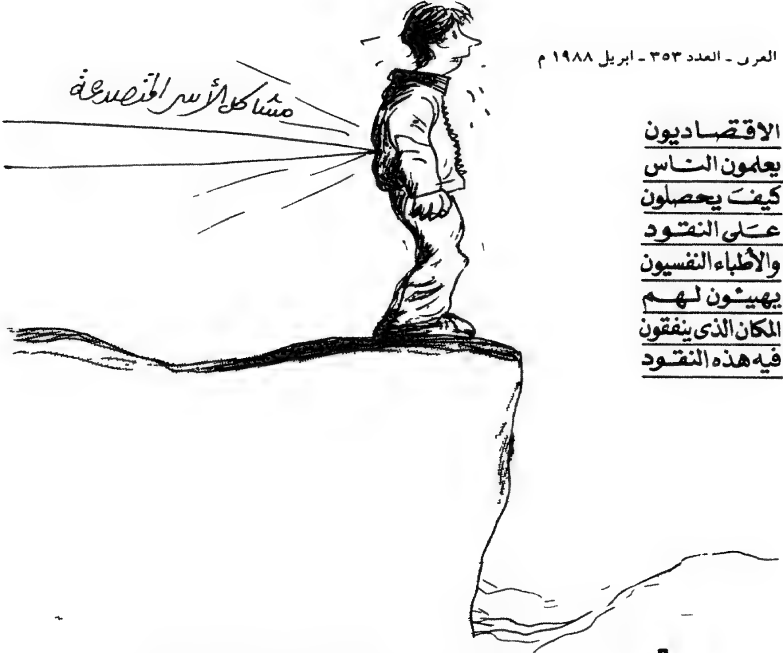 العربى - العدد ٣٥٣ - ابريل ١٩٨٨ م
مشاكل الأسر المتصدعة
الاقتصاديون
يعلمون الناس
كيف يحصلون
على النقود
والأطباء النفسيون
يهيئون لهم
المكان الذى ينفقون
فيه هذه النقود